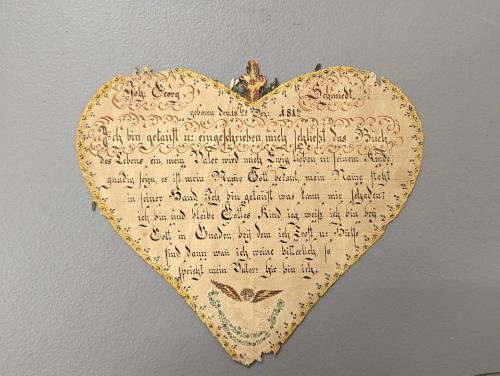 Joh: Georg Schmidt
geboren den 18ten Dez: 1817
Ich bin getauft u: eingeschrieben, mich schließt das Buch
des Lebens ein, mein Vater wird mich Ewig lieben in seinem Kinde
gnädig seyn, es ist mein Name Gott bekant, mein Name steht
in seiner Hand, Ich bin getauft was kann mir schaden?
ich bin und bleibe Gottes Kind, ich weiß ich bin bey
Gott in Gnaden, bey dem ich Trost u: Hülfe
find dann wan ich weine bitterlich, so
spricht mein Vater: hir bin ich.